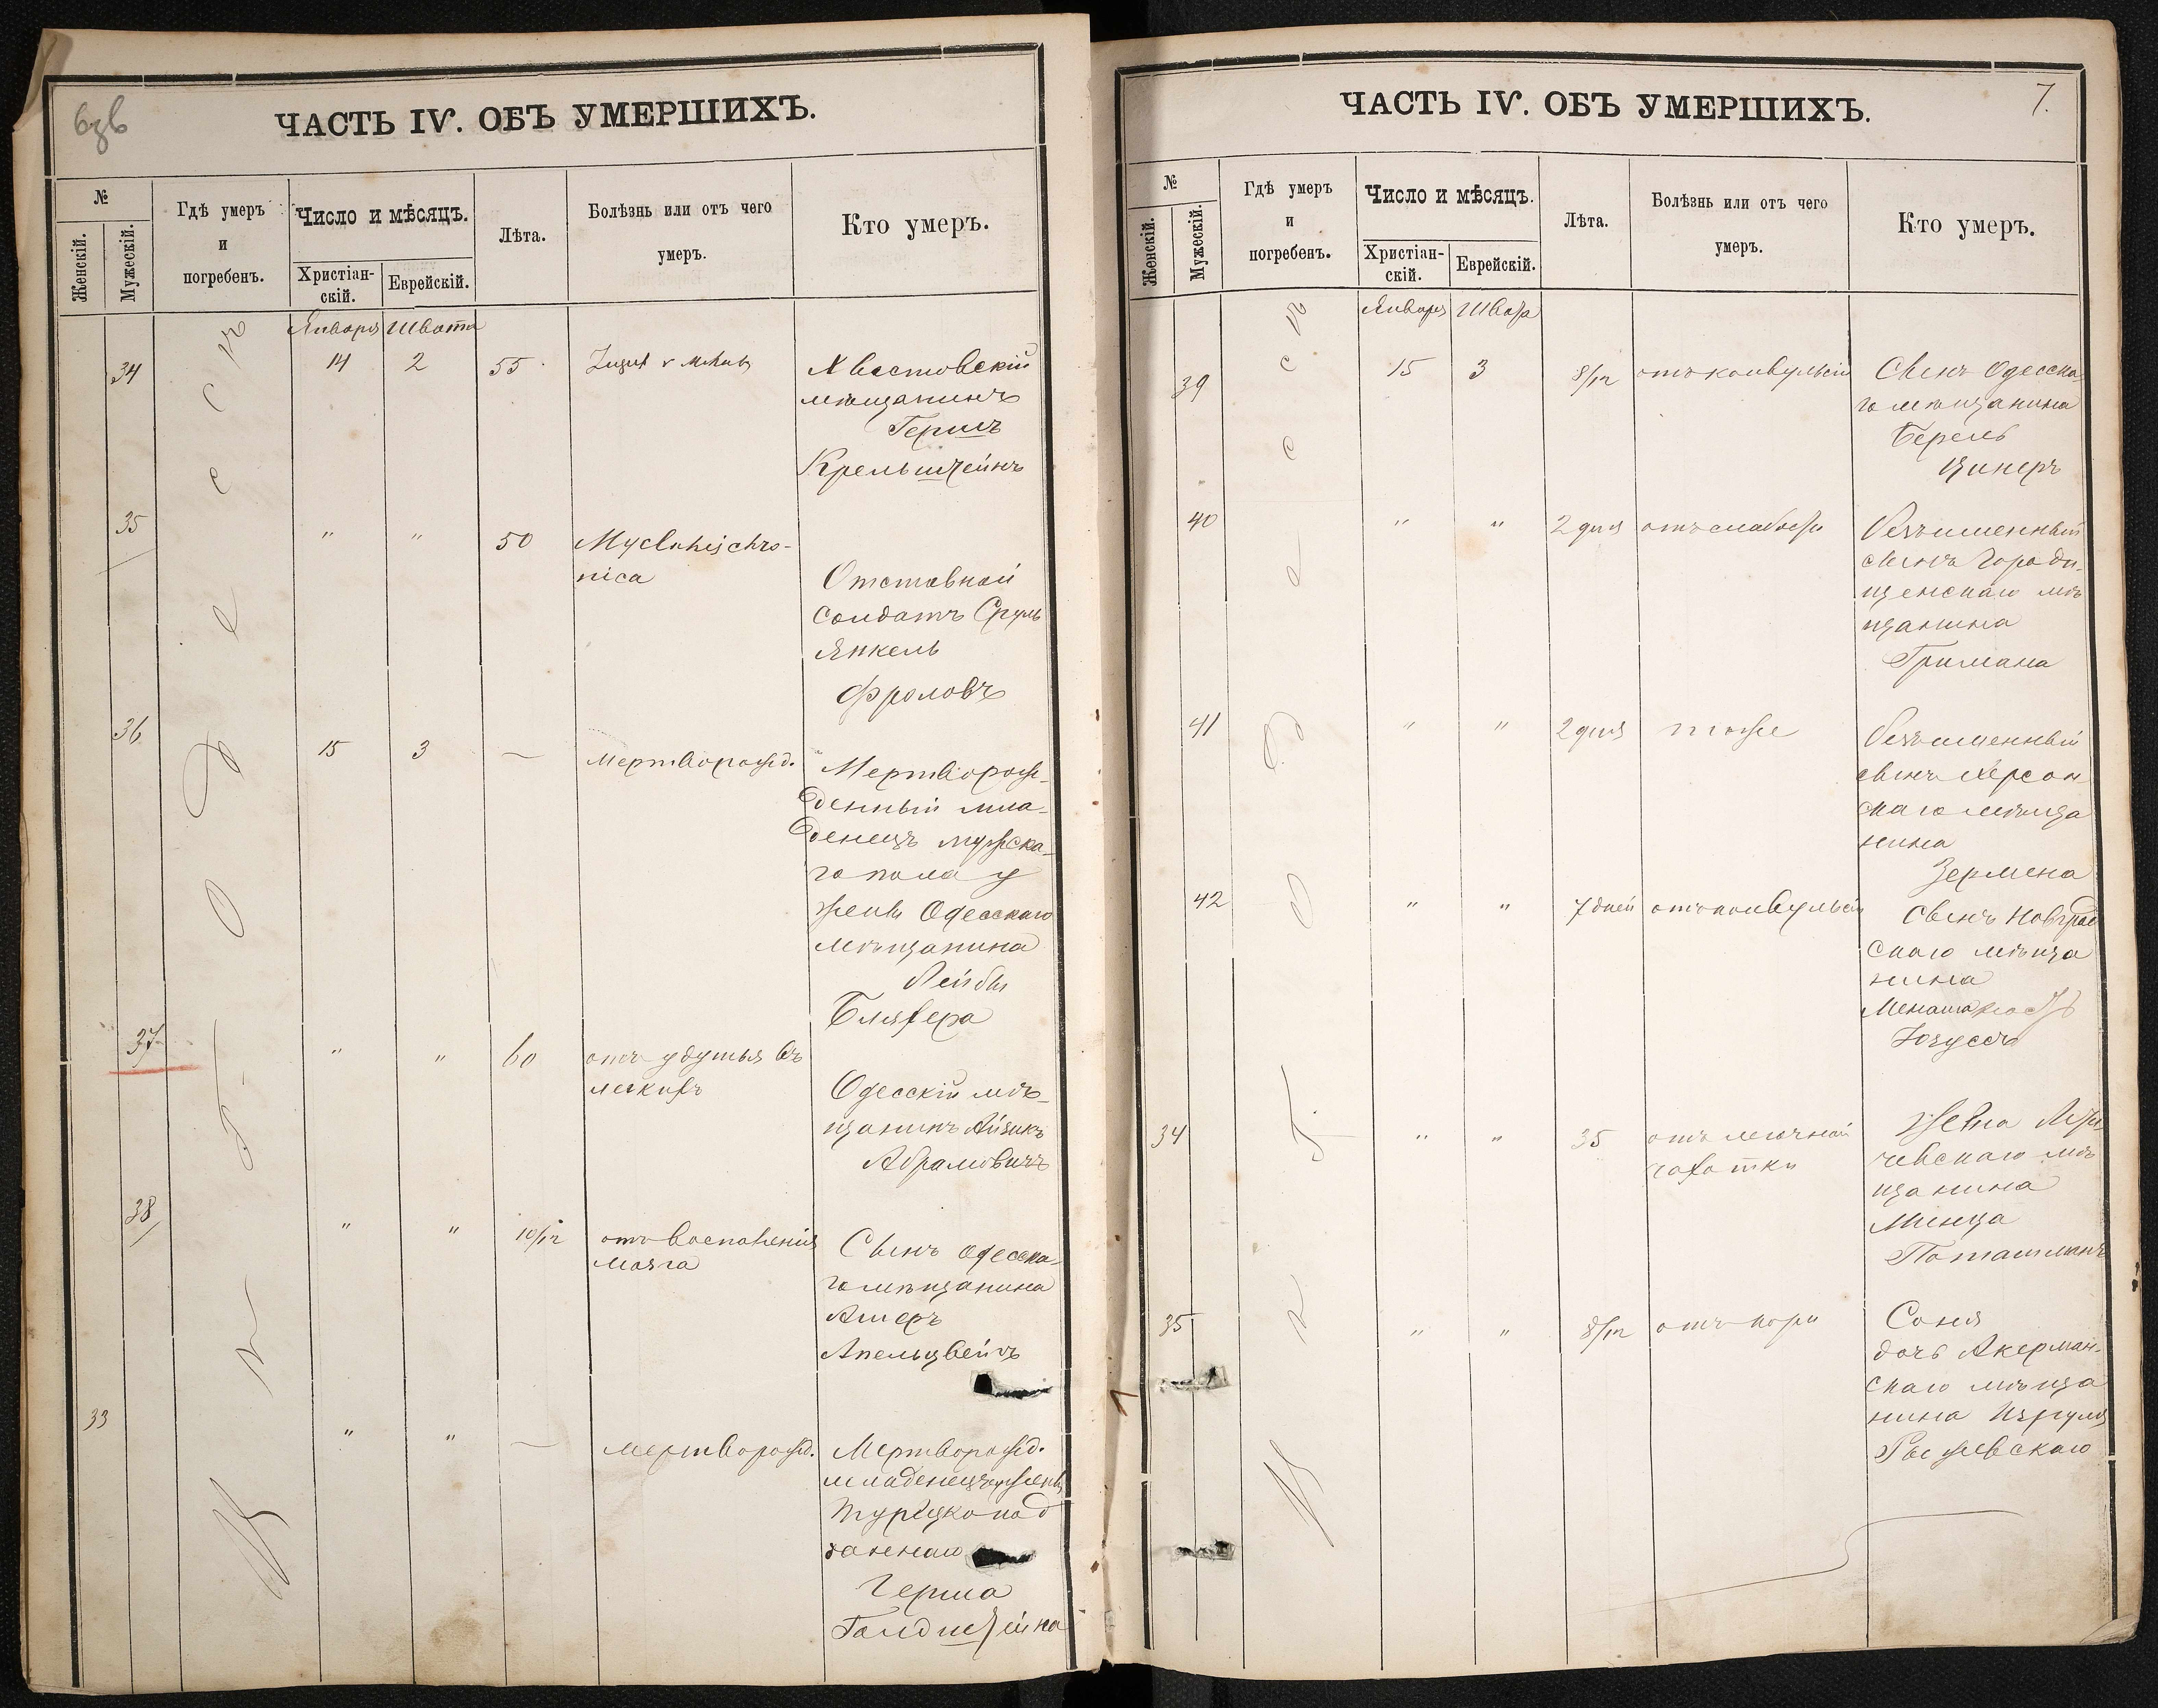 ЧАСТЬ IV. ОБЪ УМЕРШИХЪ.
№
Женскій.
Мужескій.
Гдѣ умеръ
и
погребенъ.
Число и мѣсяцъ.
Христіан-
скій.
Еврейскій.
Лѣта.
Болѣзнь или отъ чего
умеръ.
Кто умеръ.
Января Швата
34 14 2 55
Хвастовскій
мѣщанинъ
Гершъ
Крельштейнъ
35 " " 50
nica
Отставной
солдатъ Сруль
Янкель
Фроловъ
36 15 3 — мертворожд.
Мертворож-
денный мла-
денецъ мужска-
го пола у
жены Одесскаго
мѣщанина
Лейбы
37 " " 60 отъ удушья въ
легкихъ
Одесскій мѣ-
щанинъ Айзикъ
Абрамовичъ
38 " " 10/12 отъ воспаленія
мозга
Сынъ Одесска-
го мѣщанина
Ашеръ
Апельцвейгъ
33 " " — мертворожд.
Мертворожд.
младенецъ у жены
Турецкопод
даннаго
Герша
Голдштейна
въ г. Одессѣ
ЧАСТЬ IV. ОБЪ УМЕРШИХЪ.
7.
№
Женскій.
Мужескій.
Гдѣ умеръ
и
погребенъ.
Число и мѣсяцъ.
Христіан-
скій.
Еврейскій.
Лѣта.
Болѣзнь или отъ чего
умеръ.
Кто умеръ.
Января Швата
39 15 3 8/12 отъ конвульсій
Сынъ Одесска-
го мѣщанина
Берель
Цинеръ
40 " " 2 дня отъ слабости
безъименный
сынъ Городи-
щенскаго мѣ
щанина
Гримана
41 " " 2 дня тоже
безъименный
сынъ Херсон
скаго мѣща
нина
Зермена
42 " " 7 дней отъ конвульсій
Сынъ
скаго мѣща
нина
34 " " 35 отъ легочной
чахотки
Жена
чевскаго мѣ
щанина
Минца
Поташманъ
35 " " 8/12 отъ кори
Соня
дочь Акерман-
скаго мѣща
нина
Рыжевскаго
въ г. Одессѣ